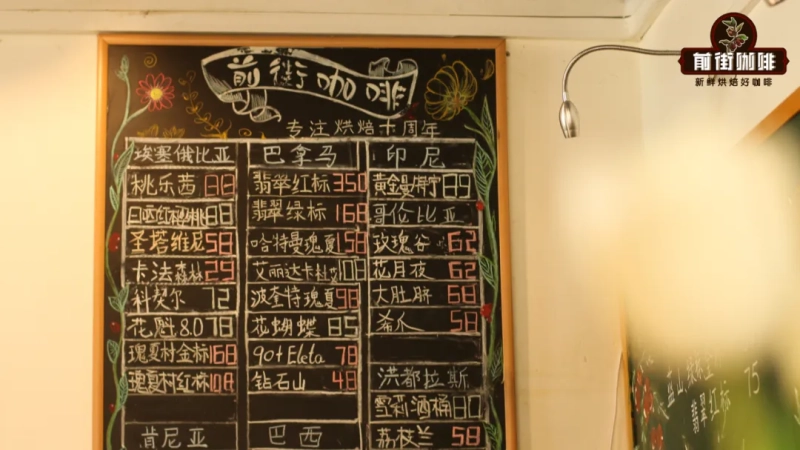 前街咖啡
新鲜烘焙好咖啡
前街咖啡
专注烘焙十周年
埃塞俄比亚 巴拿马 印尼
桃乐茜 88 翡翠红标 350 黄金曼特宁 89
88 翡翠绿标 168 哥伦比亚
圣塔维尼 58 哈特曼瑰夏 158 玫瑰谷 62
卡法森林 29 艾丽达卡杜艾 108 花月夜 62
科契尔 72 波奎特瑰夏 98 大肚脐 68
花魁8.0 78 花蝴蝶 85 希爪 58
瑰夏村金标 168 90+Eleta 78
瑰夏村红标 108 钻石山 48 洪都拉斯
雪莉酒桶 80
肯尼亚 巴西 荔枝兰 58
翡翠红标 75